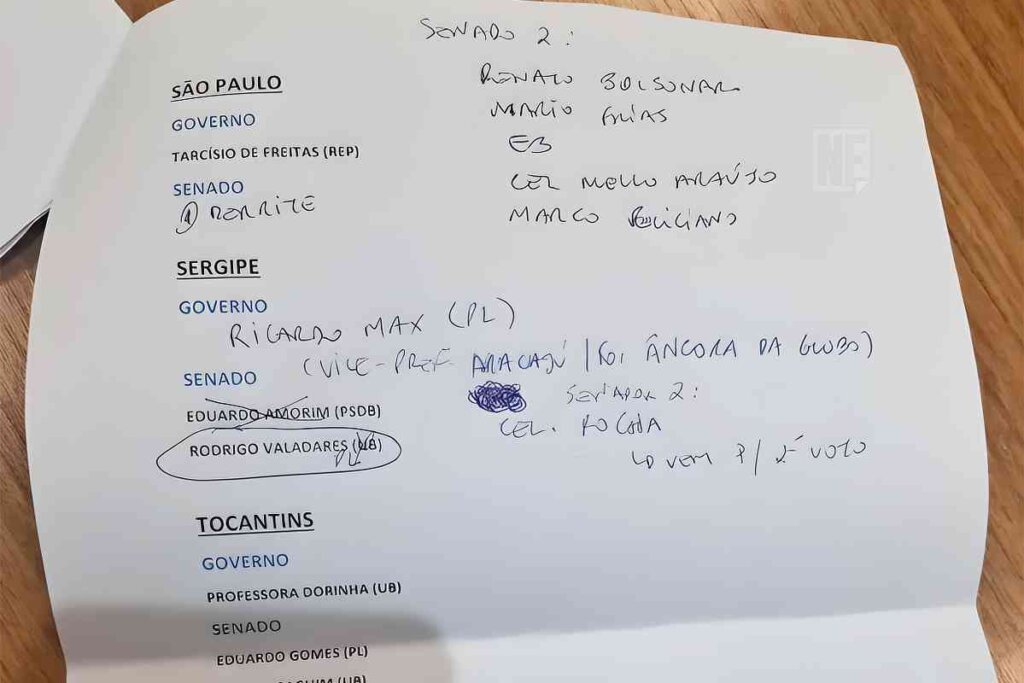 SENADO 2:
SÃO PAULO
RENATO BOLSONARO
GOVERNO
MARIO FRIAS
TARCÍSIO DE FREITAS (REP)
EB
SENADO
CEL MELLO ARAÚJO
① DERRITE
MARCO FELICIANO
NE
SERGIPE
GOVERNO
RICARDO MAX (PL)
(VICE-PREF ARACAJÚ / FOI ÂNCORA DA GLOBO)
SENADO
EDUARDO AMORIM (PSDB)
SENADOR 2:
RODRIGO VALADARES (UB)
CEL. ROCHA
VEM P/ 2º VOTO
TOCANTINS
GOVERNO
PROFESSORA DORINHA (UB)
SENADO
EDUARDO GOMES (PL)
(UB)